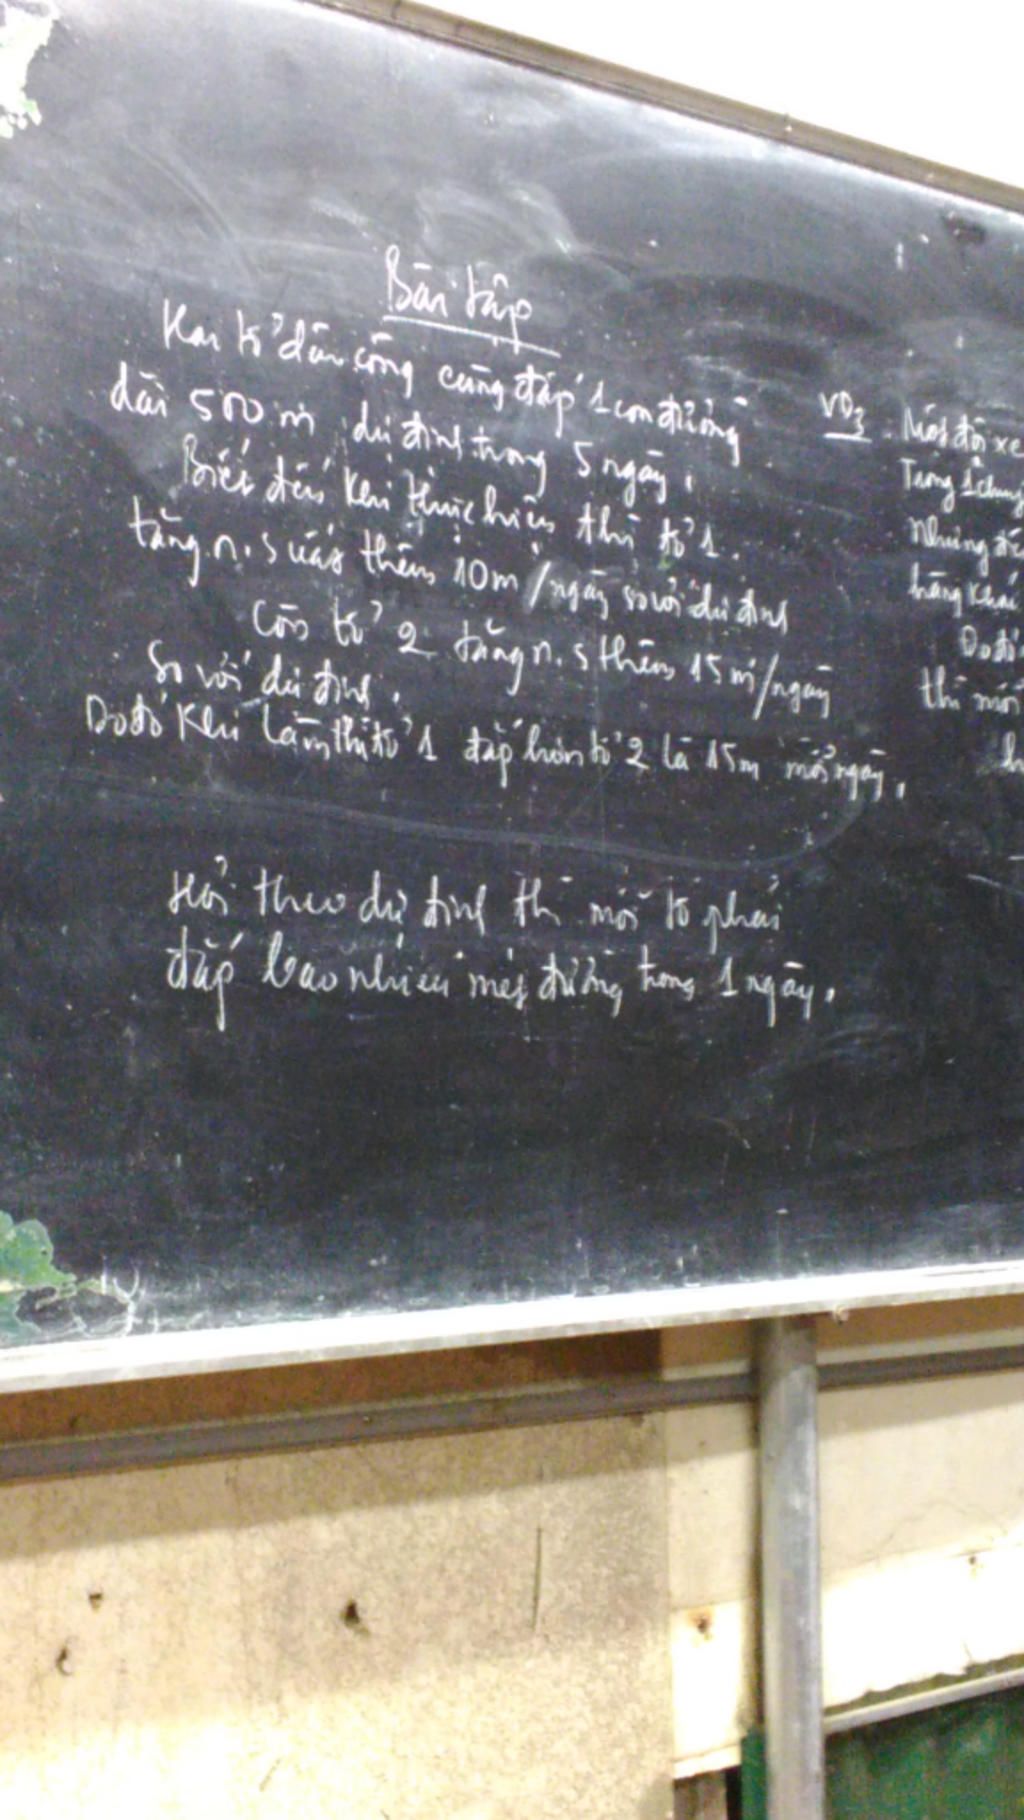 Bài tập
Hai tổ dân công cùng đắp 1 con đường
dài 500 m dự định trong 5 ngày.
Biết đến khi thực hiện thì tổ 1
tăng n.suất thêm 10m/ngày so với dự định
Còn tổ 2 tăng n.s thêm 15m/ngày
so với dự định.
Do đó khi làm thì tổ 1 đắp hơn tổ 2 là 15m mỗi ngày.
Hỏi theo dự định thì mỗi tổ phải
đắp bao nhiêu mét đường trong 1 ngày.
VD3 Một đội xe
Trong 1 
Nhưng
hàng
Do đó
thì mỗi